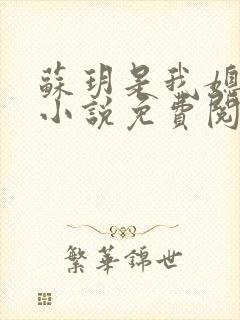 蘇玥是我媽
小說免費閱
繁華錦世